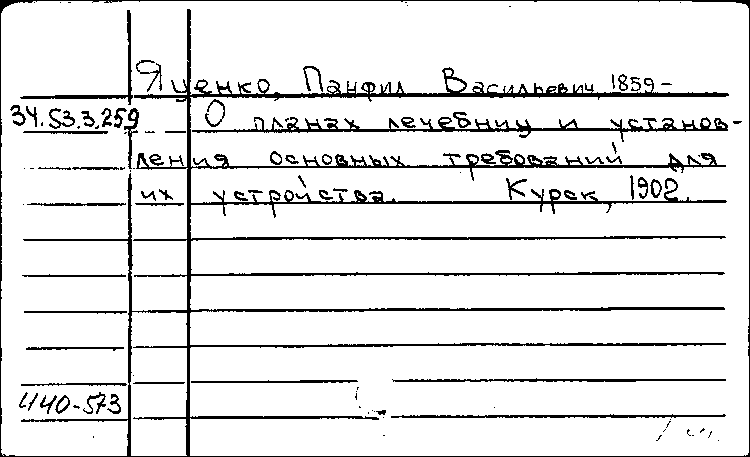 Яценко, Панфил Васильевич, 1859-
34.53.3.259 О планах лечебниц и установ-
ления основных требований для
их устройства. Курск, 1902.
440-573